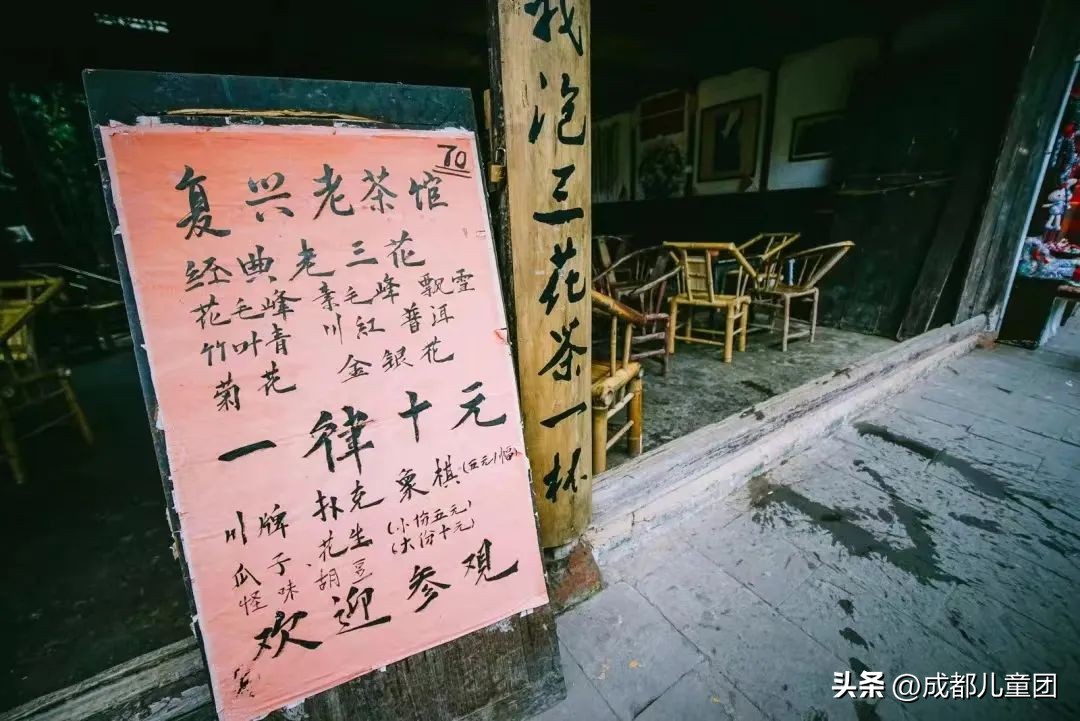 70
复兴老茶馆
经典老三花
花毛峰 素毛峰 飘雪
竹叶青 川红 普洱
菊花 金银花
一律十元
川牌 扑克 象棋(五元/幅)
瓜子 花生 (小份五元)
怪味胡豆 (大份十元)
欢迎参观
我泡三花茶一杯
头条 @成都儿童团